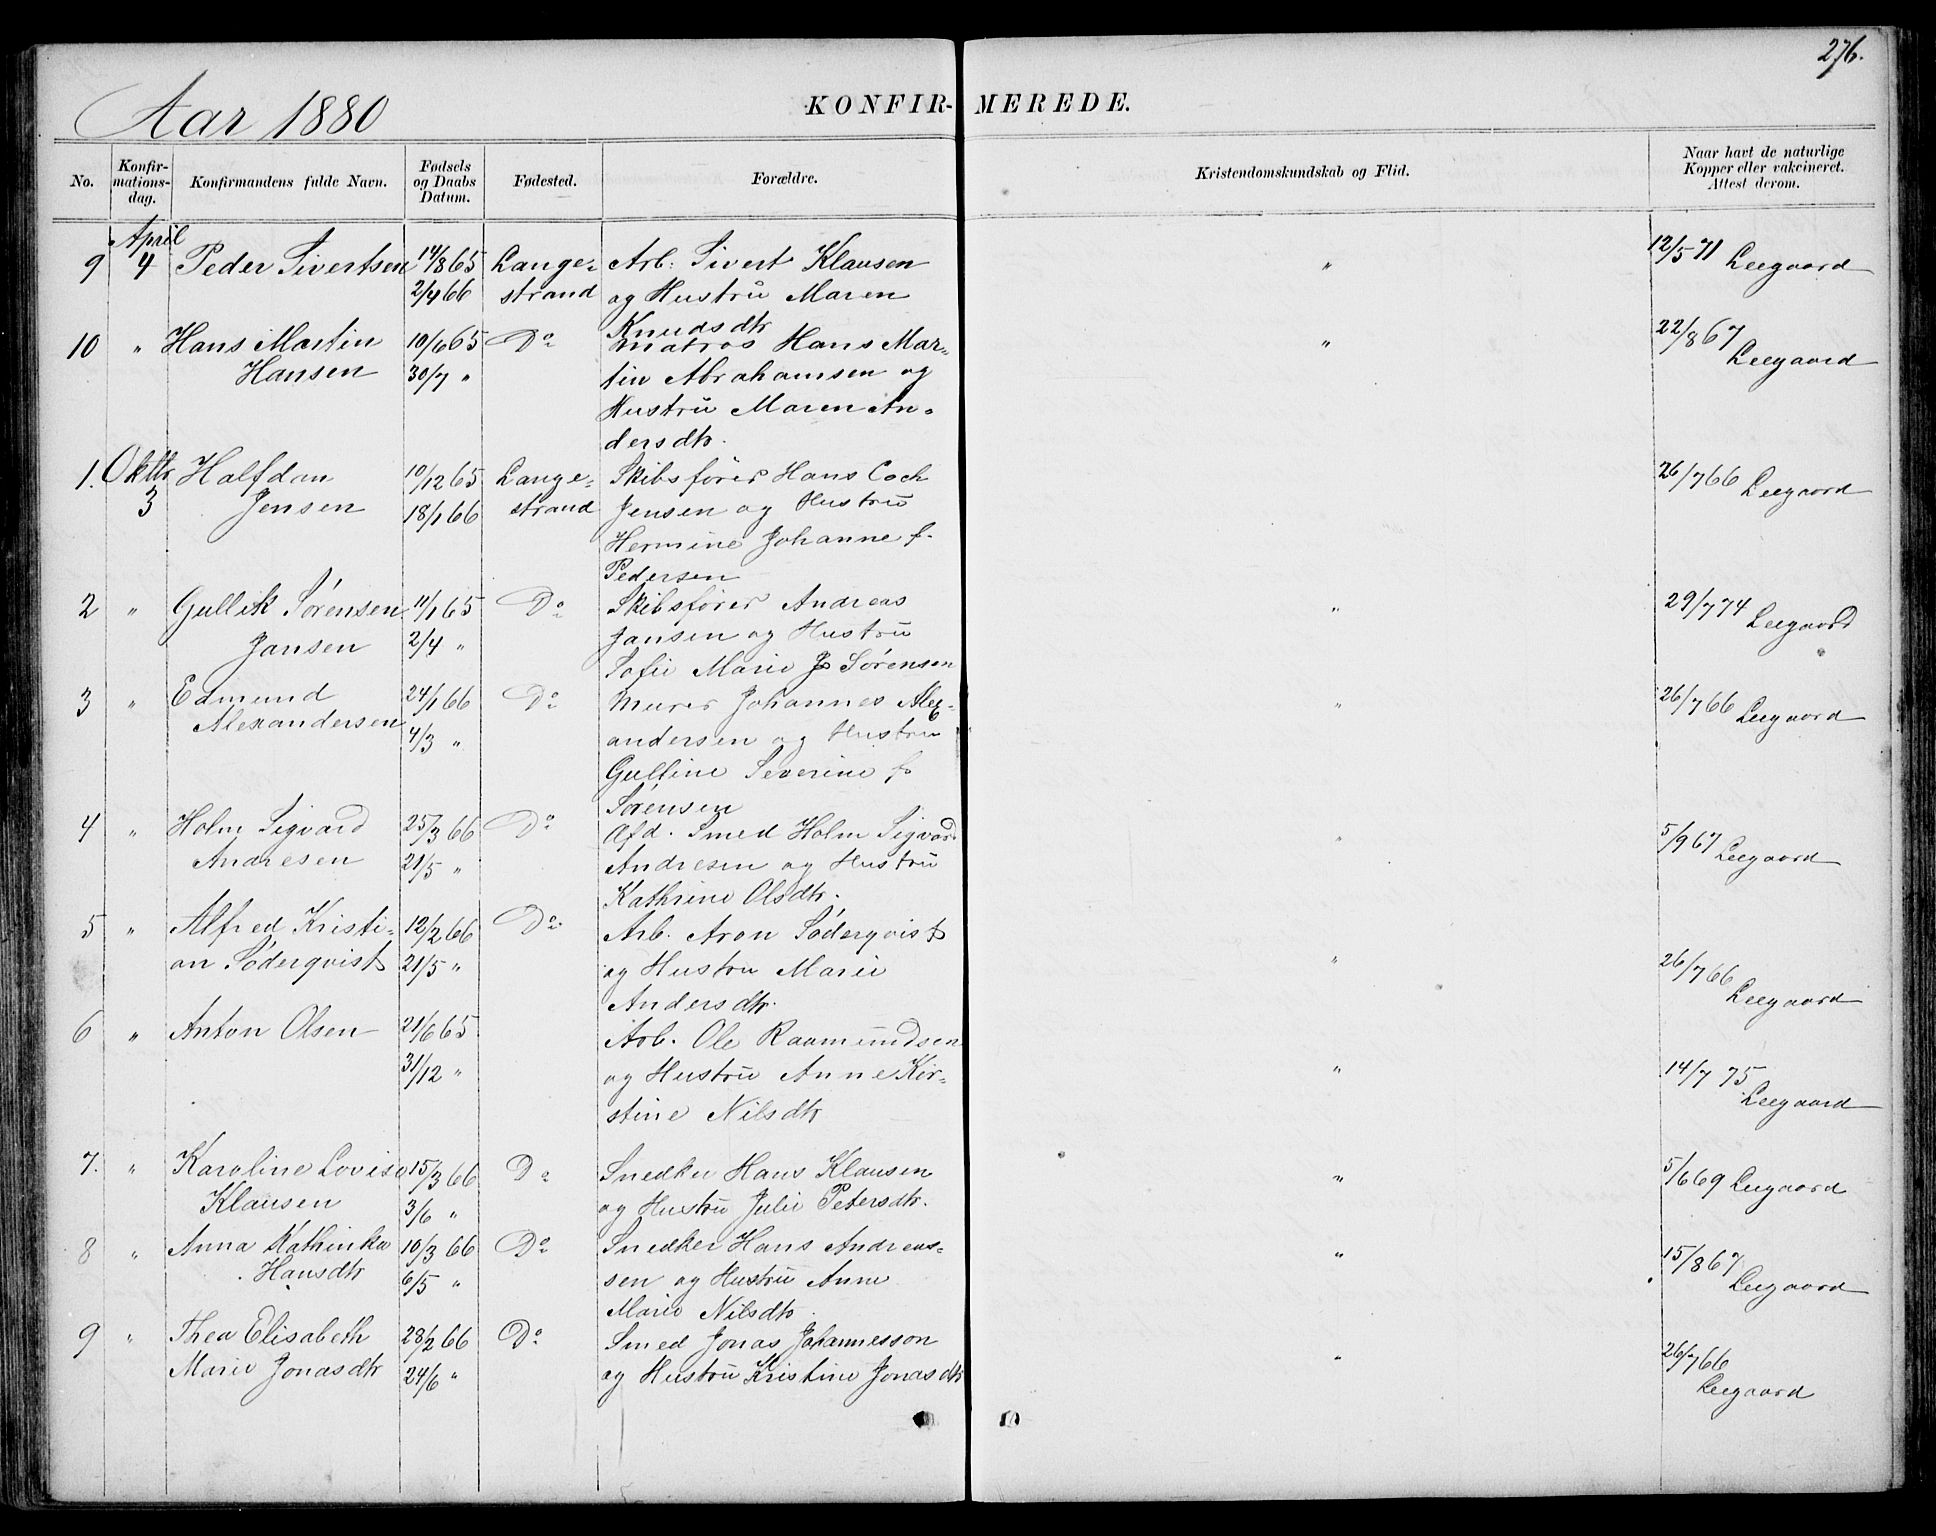 276.
Aar 1880
KONFIR- MEREDE.
No. Konfir-mations-dag. Konfirmandens fulde Navn. Fødsels og Daabs Datum. Fødested. Forældre. Kristendomskundskab og Flid. Naar havt de naturlige Kopper eller vakcineret. Attest derom.
April
9 4 Peder Sivertsen 14/8 65 Lange- Arb. Sivert Klausen " 12/5 71 Leegaard
2/4 66 strand og Hustru Maren
Knudsdtr
10 " Hans Martin 10/6 65 Do Matros Hans Mar- " 22/8 67
Hansen 30/7 " tin Abrahamsen og Leegaard
Hustru Maren An-
dersdtr.
1. Oktbr Halfdan 10/12 65 Lange- Skibsfører Hans Coch 26/7 66 Leegaard
3 Jensen 18/1 66 strand Jensen og Hustru
Hermine Johanne f.
Pedersen
2 " Gullik Sörensen 11/1 65 Do Skibsfører Andreas " 29/7 74 Leegaard
Jansen 2/4 " Jansen og Hustru
Sofie Marie f. Sörensen
3 " Edmund 24/1 66 Do Murer Johannes Alex- " 26/7 66 Leegaard
Alexandersen 4/3 " andersen og Hustru
Gulline Severine f.
Sörensen
4 " Holm Sigvard 25/3 66 Do Afd. Smed Holm Sigvard " 5/9 67 Leegaard
Andresen 21/5 " Andresen og Hustru
Kathrine Olsdtr.
5 " Alfred Kristi- 12/2 66 Do Arb. Aron Söderqvist
an Söderqvist 21/5 " og Hustru Marie " 26/7 66
Andersdtr. Leegaard
6 " Anton Olsen 21/6 65 Arb. Ole Raamundsen
31/12 " og Hustru Anne Kir- " 14/7 75
stine Nilsdtr Leegaard
7. " Karoline Lovise 15/3 66 Do Snedker Hans Klausen " 5/6 69 Leegaard
Klausen 3/6 " og Hustru Julie Petersdtr.
8 " Anna Kathinka 10/3 66 Do Snedker Hans Andreas- " 15/8 67
Hansdtr 6/5 " sen og Hustru Anne Leegaard
Marie Nilsdtr.
9 " Thea Elisabeth 28/2 66 Do Smed Jonas Johannesson " 26/7 66
Marie Jonasdtr 24/6 " og Hustru Kristine Jonasdtr Leegaard